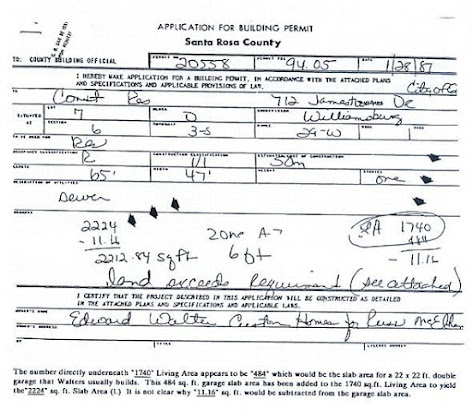 APPLICATION FOR BUILDING PERMIT
Santa Rosa County
TO: COUNTY BUILDING OFFICIAL 20558 94.05 DATE 1/28/87
I HEREBY MAKE APPLICATION FOR A BUILDING PERMIT, IN ACCORDANCE WITH THE ATTACHED PLANS
AND SPECIFICATIONS AND APPLICABLE PROVISIONS OF LAW. City of
Const Res 712 Jamestowne Dr
SITUATED AS LOT 7 D Williamsburg
SECTION 6 TOWNSHIP 3-S RANGE 29-W
TO BE USED FOR
Res
R CONSTRUCTION CLASSIFICATION VI ESTIMATED COST OF CONSTRUCTION 50m
65' 47' HEIGHT STORIES one
DESCRIPTION OF UTILITIES
Sewer
REMARKS
2224 Zone A-7 LA 1740
- 11.16 6 ft 484
2212.84 sq ft - 11.16
land exceeds requirement (see attached)
I CERTIFY THAT THE PROJECT DESCRIBED IN THIS APPLICATION WILL BE CONSTRUCTED AS DETAILED
IN THE ATTACHED PLANS AND SPECIFICATIONS AND APPLICABLE LAWS.
OWNER'S NAME
Edward Walter Custom Homes for Russ
LICENSE NUMBER
The number directly underneath "1740" Living Area appears to be "484" which would be the slab area for a 22 x 22 ft. double
garage that Walters usually builds. This 484 sq.ft. garage slab area has been added to the 1740 sq.ft. Living Area to yield
the "2224" sq. ft. Slab Area (l.) It is not clear why "11.16" sq ft. would be subtracted from the garage slab area.